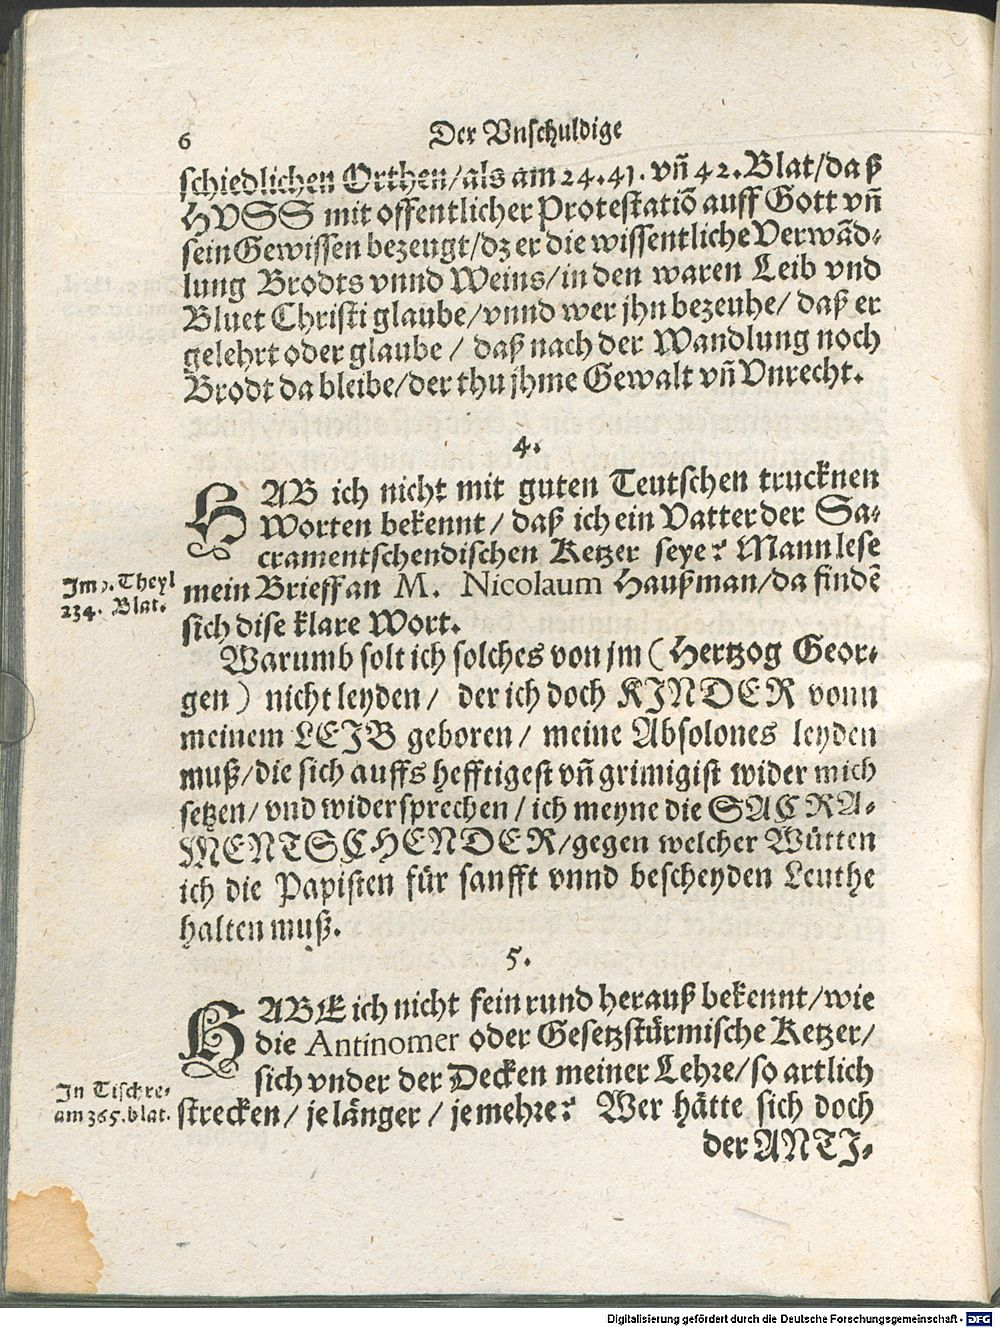 6
Der Vnschuldige
schiedlichen Orthen/als am 24.41. vñ 42.Blat/daß
HVSS mit offentlicher Protestatiõ auff Gott vñ
sein Gewissen bezeugt/dz er die wissentliche Verwãd-
lung Brodts vnnd Weins/in den waren Leib vnd
Bluet Christi glaube/vnnd wer jhn bezeuhe/ daß er
gelehrt oder glaube / daß nach der Wandlung noch
Brodt da bleibe/der thu jhme Gewalt vñ Vnrecht.
4.
HAB ich nicht mit guten Teutschen trucknen
Worten bekennt / daß ich ein Vatter der Sa-
cramentschendischen Ketzer seye? Mann lese
mein Brieff an M. Nicolaum Haußman/da findẽ
sich dise klare Wort.
Im 2. Theyl
234. Blat.
Warumb solt ich solches von jm ( Hertzog Geor-
gen ) nicht leyden / der ich doch KINDER vonn
meinem LEIB geboren / meine Absolones leyden
muß/die sich auffs hefftigest vñ grimigist wider mich
setzen/ vnd widersprechen / ich meyne die SACRA-
MENTSCHENDER/gegen welcher Wütten
ich die Papisten für sanfft vnnd bescheyden Leuthe
halten muß.
5.
HABE ich nicht fein rund herauß bekennt/wie
die Antinomer oder Gesetzstürmische Ketzer/
sich vnder der Decken meiner Lehre/so artlich
strecken / je länger / je mehre? Wer hätte sich doch
In Tischre-
am 365.blat.
der ANTI-
Digitalisierung gefördert durch die Deutsche Forschungsgemeinschaft - DFG